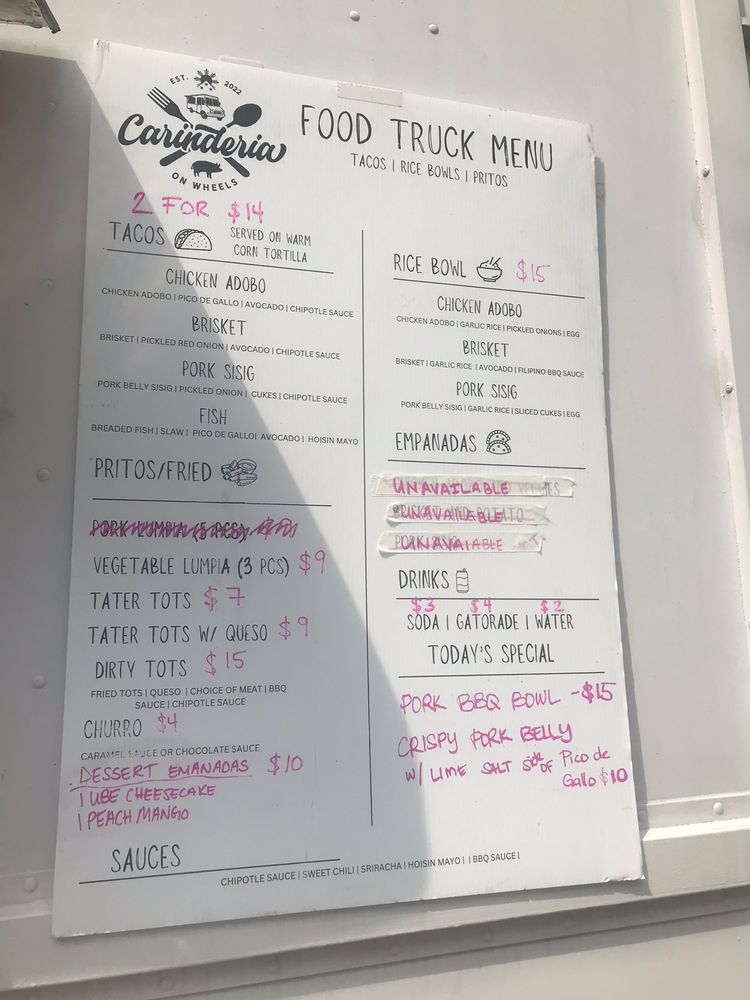 EST. 2022
Carinderia
ON WHEELS
FOOD TRUCK MENU
TACOS | RICE BOWLS | PRITOS
2 FOR $14
TACOS
SERVED ON WARM
CORN TORTILLA
CHICKEN ADOBO
CHICKEN ADOBO | PICO DE GALLO | AVOCADO | CHIPOTLE SAUCE
BRISKET
BRISKET | PICKLED RED ONION | AVOCADO | CHIPOTLE SAUCE
PORK SISIG
PORK BELLY SISIG | PICKLED ONION | CUKES | CHIPOTLE SAUCE
FISH
BREADED FISH | SLAW | PICO DE GALLO | AVOCADO | HOISIN MAYO
PRITOS/FRIED
PORK LUMPIA (5 PCS)
VEGETABLE LUMPIA (3 PCS) $9
TATER TOTS $7
TATER TOTS W/ QUESO $9
DIRTY TOTS $15
FRIED TOTS | QUESO | CHOICE OF MEAT | BBQ
SAUCE | CHIPOTLE SAUCE
CHURRO $4
CARAMEL SAUCE OR CHOCOLATE SAUCE
DESSERT EMANADAS $10
1 UBE CHEESECAKE
1 PEACH MANGO
RICE BOWL $15
CHICKEN ADOBO
CHICKEN ADOBO | GARLIC RICE | PICKLED ONIONS | EGG
BRISKET
BRISKET | GARLIC RICE | AVOCADO | FILIPINO BBQ SAUCE
PORK SISIG
PORK BELLY SISIG | GARLIC RICE | SLICED CUKES | EGG
EMPANADAS
UNAVAILABLE
UNAVAILEBLE
UNAVAIABLE
DRINKS
$3 $4 $2
SODA | GATORADE | WATER
TODAY'S SPECIAL
PORK BBQ BOWL - $15
CRISPY PORK BELLY
W/ LIME SALT OF Pico de
Gallo $10
SAUCES
CHIPOTLE SAUCE | SWEET CHILI | SRIRACHA | HOISIN MAYO | | BBQ SAUCE |